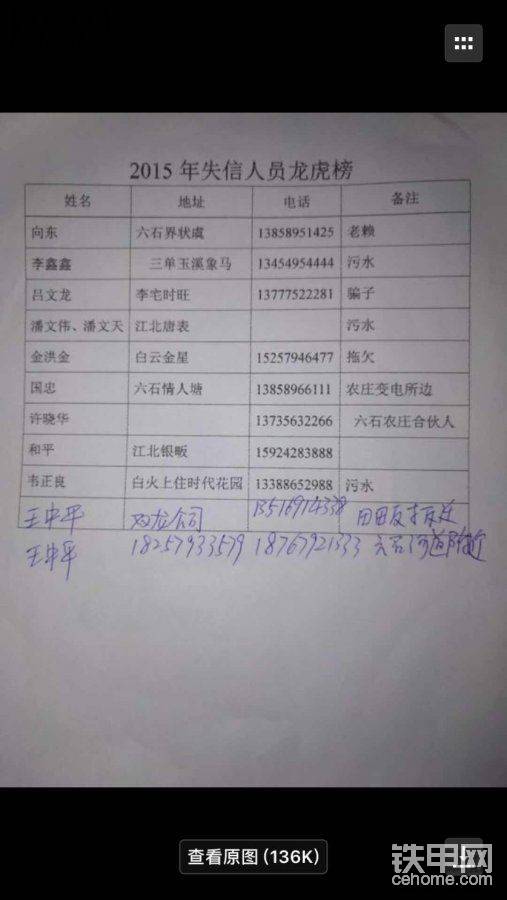 2015年失信人员龙虎榜
姓名 地址 电话 备注
向东 六石界状虞 13858951425 老赖
李鑫鑫 三单玉溪象马 13454954444 污水
吕文龙 李宅时旺 13777522281 骗子
潘文伟、潘文天 江北唐表 污水
金洪金 白云金星 15257946477 拖欠
国忠 六石情人塘 13858966111 农庄变电所边
许晓华 13735632266 六石农庄合伙人
和平 江北银畈 15924283888
韦正良 白火上住时代花园 13388652988 污水
王中平 公司
王中平 18257933579 18767921333 六石河道附近
查看原图(136K)
铁甲网
cehome.com